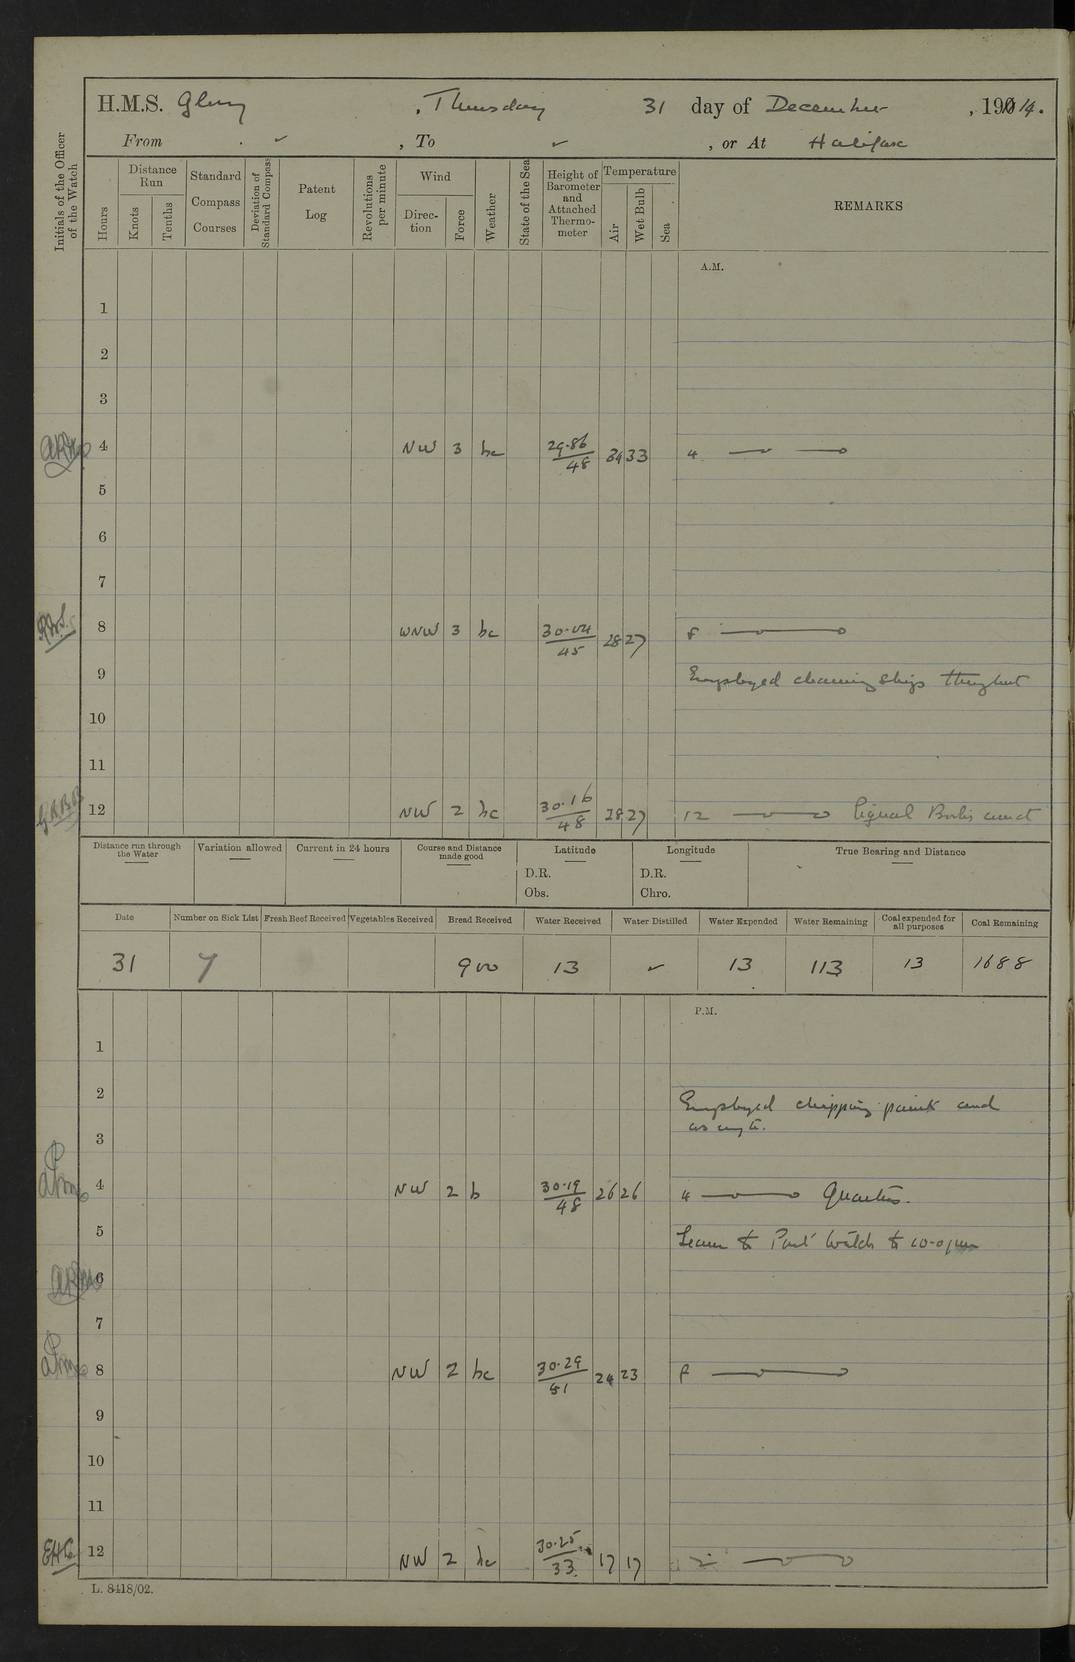 H.M.S. Glory , Thursday 31 day of December , 1914.
From , To , or At Halifax
Initials of the Officer of the Watch
Hours
Distance Run
Knots
Tenths
Standard Compass Courses
Deviation of Standard Compass
Patent Log
Revolutions per minute
Wind
Direc-tion
Force
Weather
State of the Sea
Height of Barometer and Attached Thermo-meter
Temperature
Air
Wet Bulb
Sea
REMARKS
A.M.
1
2
3
4 NW 3 bc 29.86/48 34 33 4
5
6
7
8 WNW 3 bc 30.04/45 28 27 8
9 Employed cleaning ship throughout
10
11
12 NW 2 bc 30.16/48 28 27 12
Distance run through the Water
Variation allowed
Current in 24 hours
Course and Distance made good
Latitude
D.R.
Obs.
Longitude
D.R.
Chro.
True Bearing and Distance
Date Number on Sick List Fresh Beef Received Vegetables Received Bread Received Water Received Water Distilled Water Expended Water Remaining Coal expended for all purposes Coal Remaining
31 7 900 13 ✓ 13 113 13 1688
P.M.
1
2 Employed chipping paint and
as req.
3
4 NW 2 b 30.19/48 26 26 4 Quarters.
5 Leave to Port Watch to 10.0 pm
6
7
8 NW 2 bc 30.29/51 24 23 8
9
10
11
12 NW 2 bc 30.25/33 17 17 12
L. 8418/02.